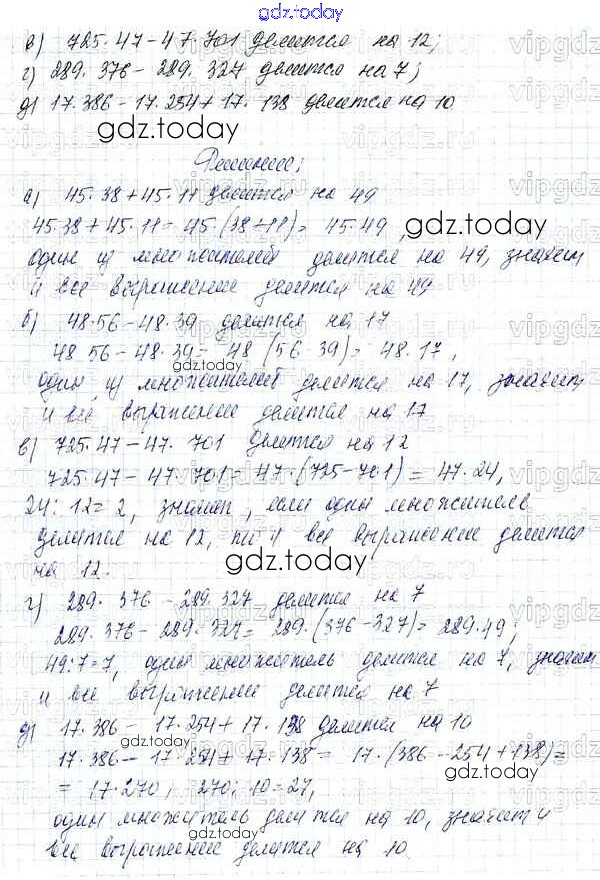 gdz.today
в) 725·47-47·701 делится на 12;
г) 289·376-289·327 делится на 7;
д) 17·386-17·254+17·138 делится на 10
gdz.today
Решение:
а) 45·38+45·11 делится на 49
45·38+45·11=45·(38+11)=45·49,
gdz.today
один из множителей делится на 49, значит
и все выражение делится на 49
б) 48·56-48·39 делится на 17
48·56-48·39=48(56-39)=48·17,
gdz.today
один из множителей делится на 17, значит
и все выражение делится на 17
в) 725·47-47·701 делится на 12
725·47-47·701=47·(725-701)=47·24,
24:12=2, значит, если один множитель
делится на 12, то и все выражение делится
gdz.today
на 12.
г) 289·376-289·327 делится на 7
289·376-289·327=289·(376-327)=289·49;
49:7=7, один множитель делится на 7, значит
gdz.today
и все выражение делится на 7
д) 17·386-17·254+17·138 делится на 10
gdz.today
17·386-17·254+17·138=17·(386-254+138)=
=17·270, 270:10=27,
gdz.today
один множитель делится на 10, значит и
gdz.today
все выражение делится на 10